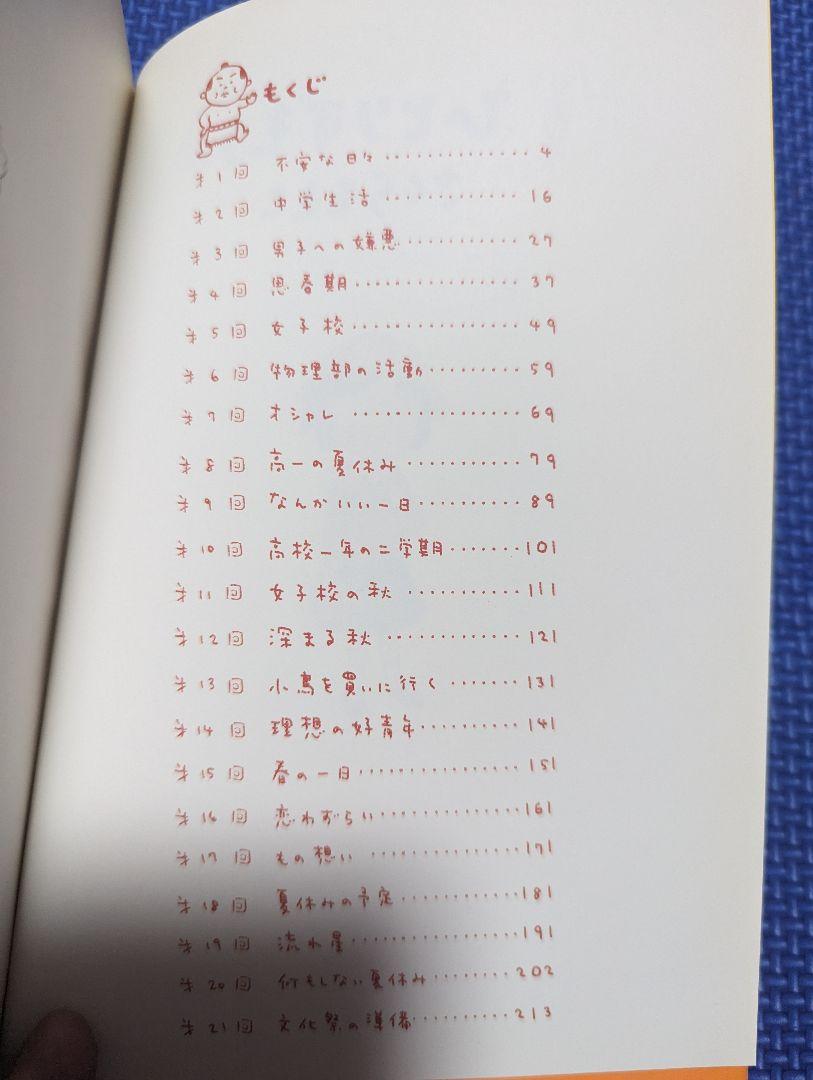 もくじ
第1回 不安な日々・・・・・・・・・・・・・・4
第2回 中学生活・・・・・・・・・・・・・16
第3回 男子への嫌悪・・・・・・・・・・・27
第4回 思春期・・・・・・・・・・・・・・・37
第5回 女子校・・・・・・・・・・・・・・・49
第6回 物理部の活動・・・・・・・・・59
第7回 オシャレ・・・・・・・・・・・・・・・69
第8回 高一の夏休み・・・・・・・・・・79
第9回 なんかいい一日・・・・・・・・・89
第10回 高校一年の二学期・・・・・・・101
第11回 女子校の秋・・・・・・・・・・・111
第12回 深まる秋・・・・・・・・・・・・・121
第13回 小鳥を買いに行く・・・・・・・131
第14回 理想の好青年・・・・・・・・・141
第15回 春の一日・・・・・・・・・・・・・・・151
第16回 恋わずらい・・・・・・・・・・・・・161
第17回 もの想い・・・・・・・・・・・・・171
第18回 夏休みの予定・・・・・・・・・・・181
第19回 流れ星・・・・・・・・・・・・・・・191
第20回 何もしない夏休み・・・・・・・・202
第21回 文化祭の準備・・・・・・・・・・213